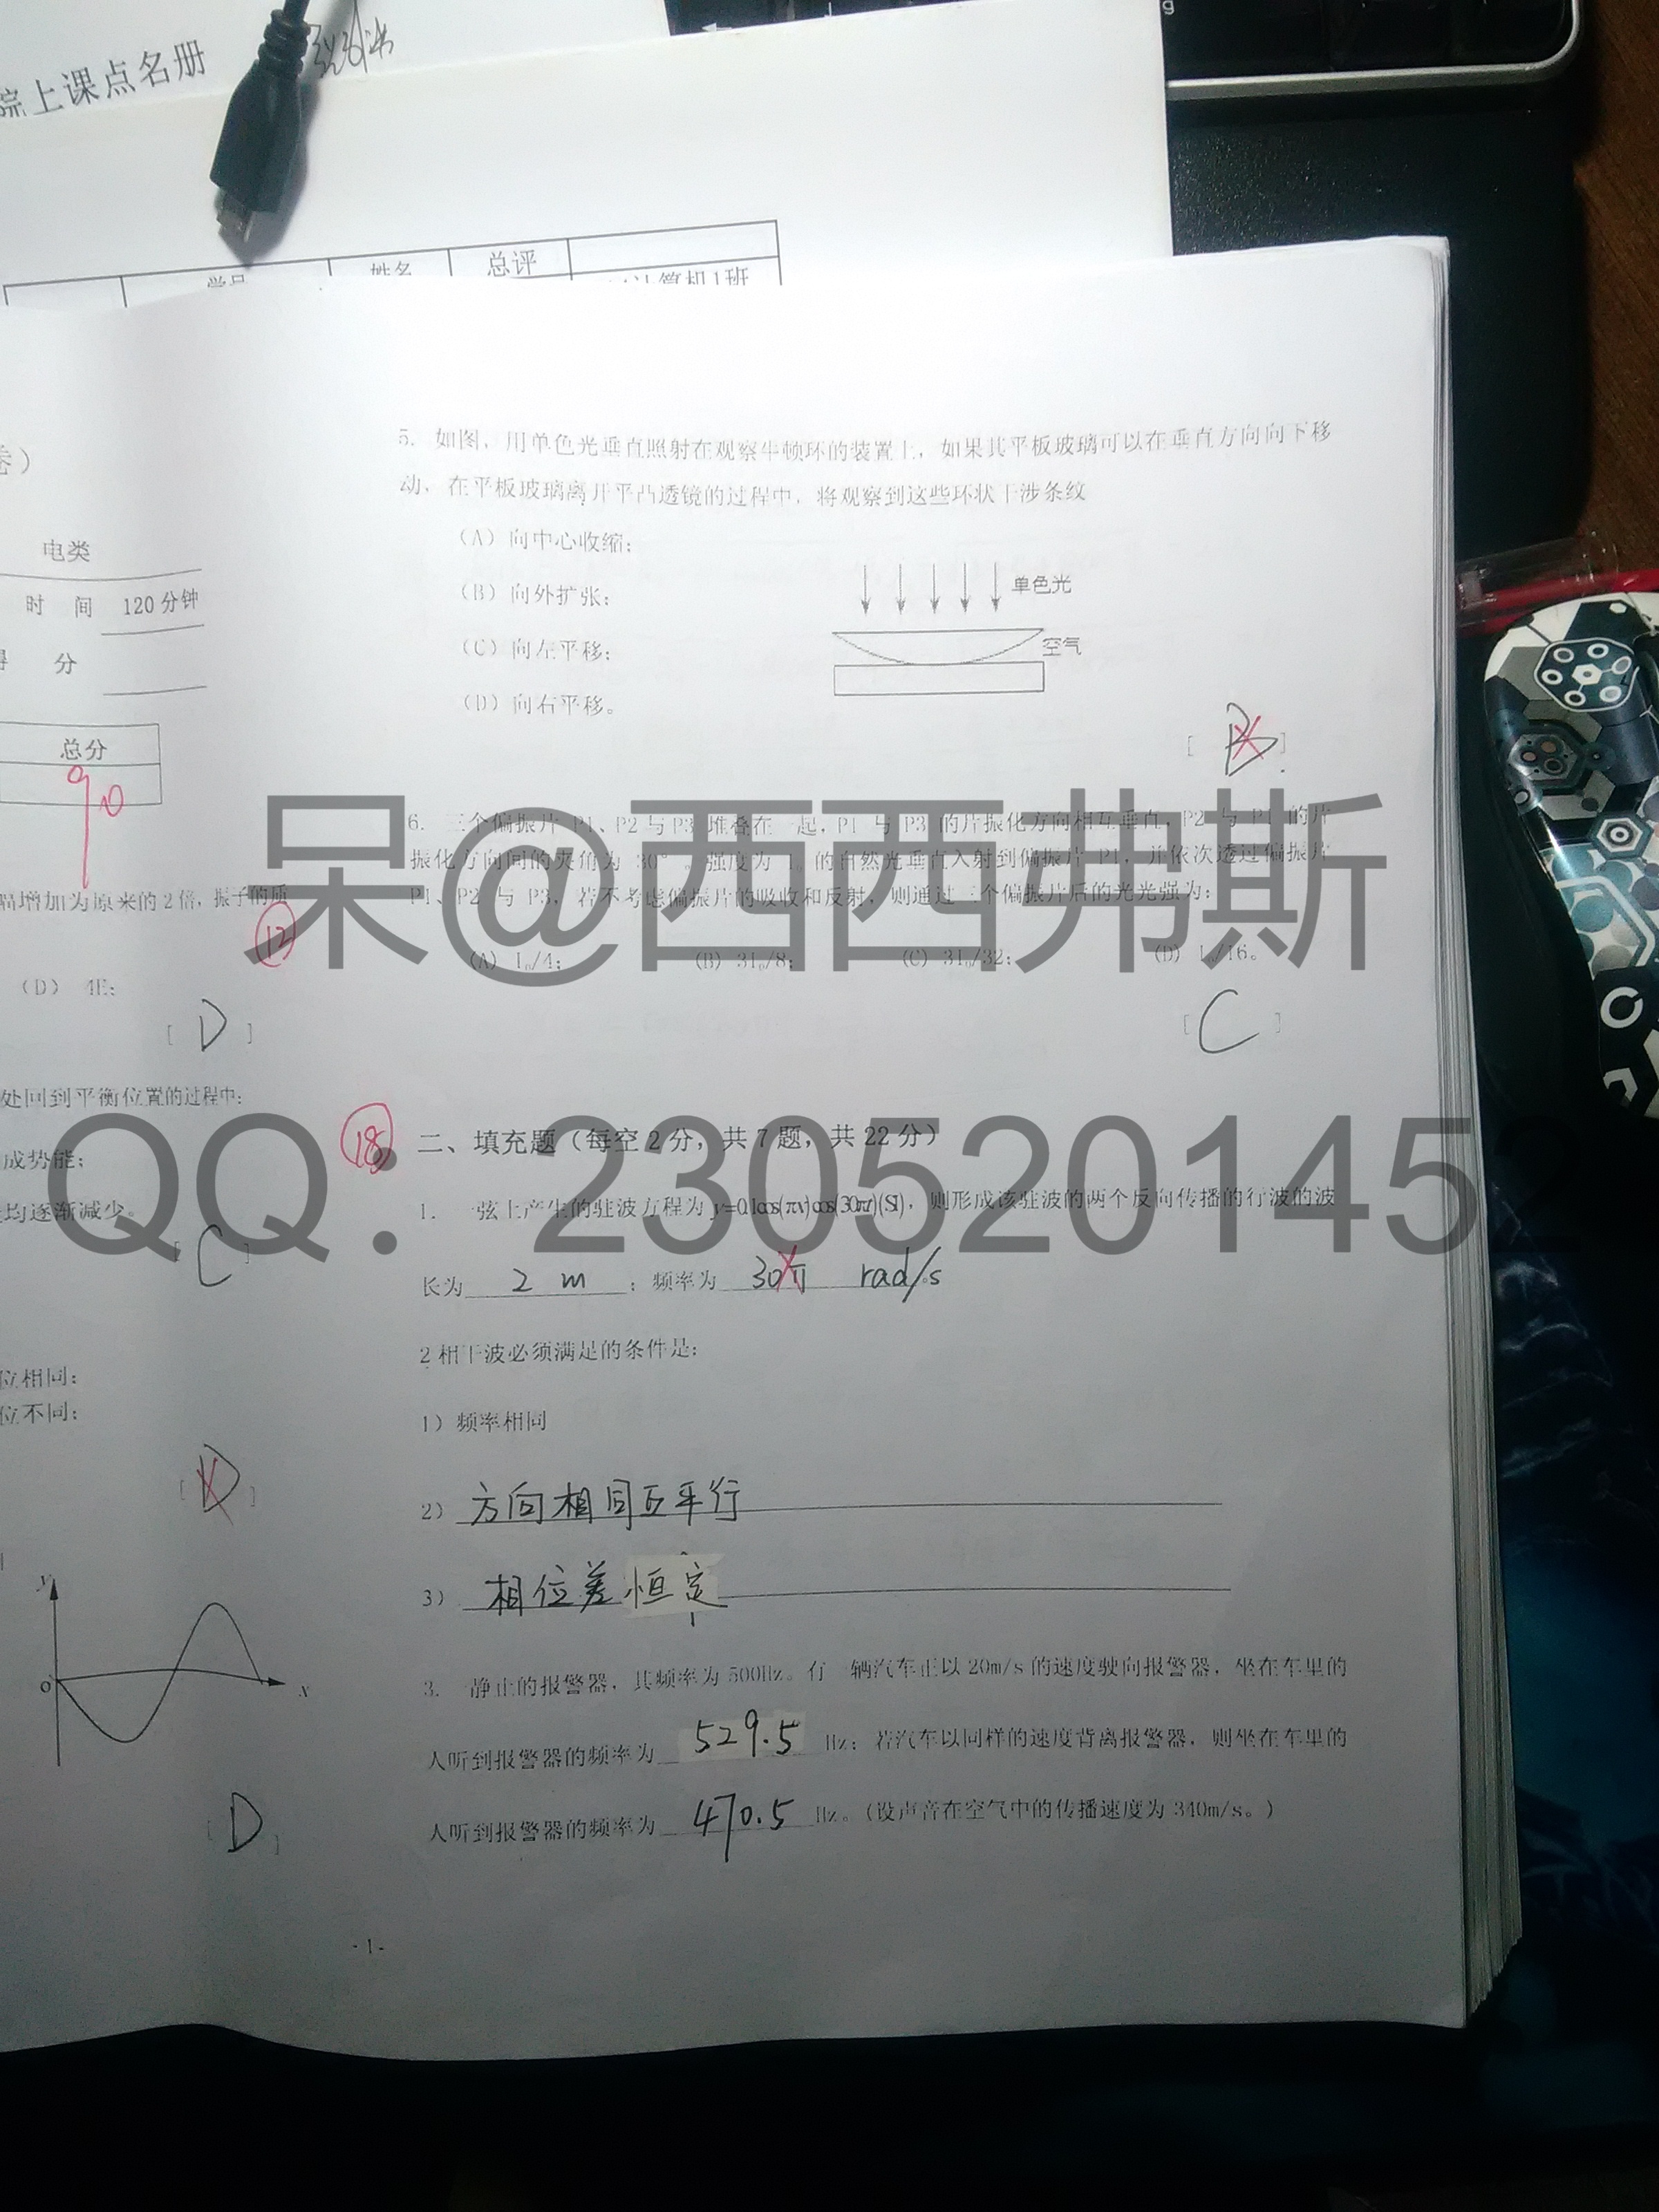 院上课点名册
学号 姓名 总评
计算机1班
卷）
电类
时 间 120分钟
得 分
总分
90
幅增加为原来的2倍，振子的质
12
（D） 4E；
[ D ]
处回到平衡位置的过程中：
成势能；
均逐渐减少。
[ C ]
位相同；
位不同；
[ D ]
y
o
x
[ D ]
5. 如图，用单色光垂直照射在观察牛顿环的装置上，如果其平板玻璃可以在垂直方向向下移
动，在平板玻璃离开平凸透镜的过程中，将观察到这些环状干涉条纹
（A）向中心收缩；
（B）向外扩张；
（C）向左平移；
（D）向右平移。
单色光
空气
[ B ]
6. 三个偏振片 P1、P2 与 P3 堆叠在一起，P1 与 P3 的片振化方向相互垂直，P2 与 P1 的片
振化方向间的夹角为 30°，强度为 I₀ 的自然光垂直入射到偏振片 P1，并依次透过偏振片
P1、P2 与 P3，若不考虑偏振片的吸收和反射，则通过三个偏振片后的光光强为：
(A) I₀/4； (B) 3I₀/8； (C) 3I₀/32； (D) I₀/16。
[ C ]
呆@西西弗斯
18
二、填充题（每空2分，共7题，共22分）
QQ：2305201452
1. 一弦上产生的驻波方程为 y=0.1cos(πx)cos(30πt)(SI)，则形成该驻波的两个反向传播的行波的波
长为 2 m ；频率为 30π rad/s 。
2相干波必须满足的条件是：
1）频率相同
2） 方向相同互平行
3） 相位差恒定
3. 一静止的报警器，其频率为500Hz。有一辆汽车正以20m/s的速度驶向报警器，坐在车里的
人听到报警器的频率为 529.5 Hz；若汽车以同样的速度背离报警器，则坐在车里的
人听到报警器的频率为 470.5 Hz。（设声音在空气中的传播速度为340m/s。）
- 1 -